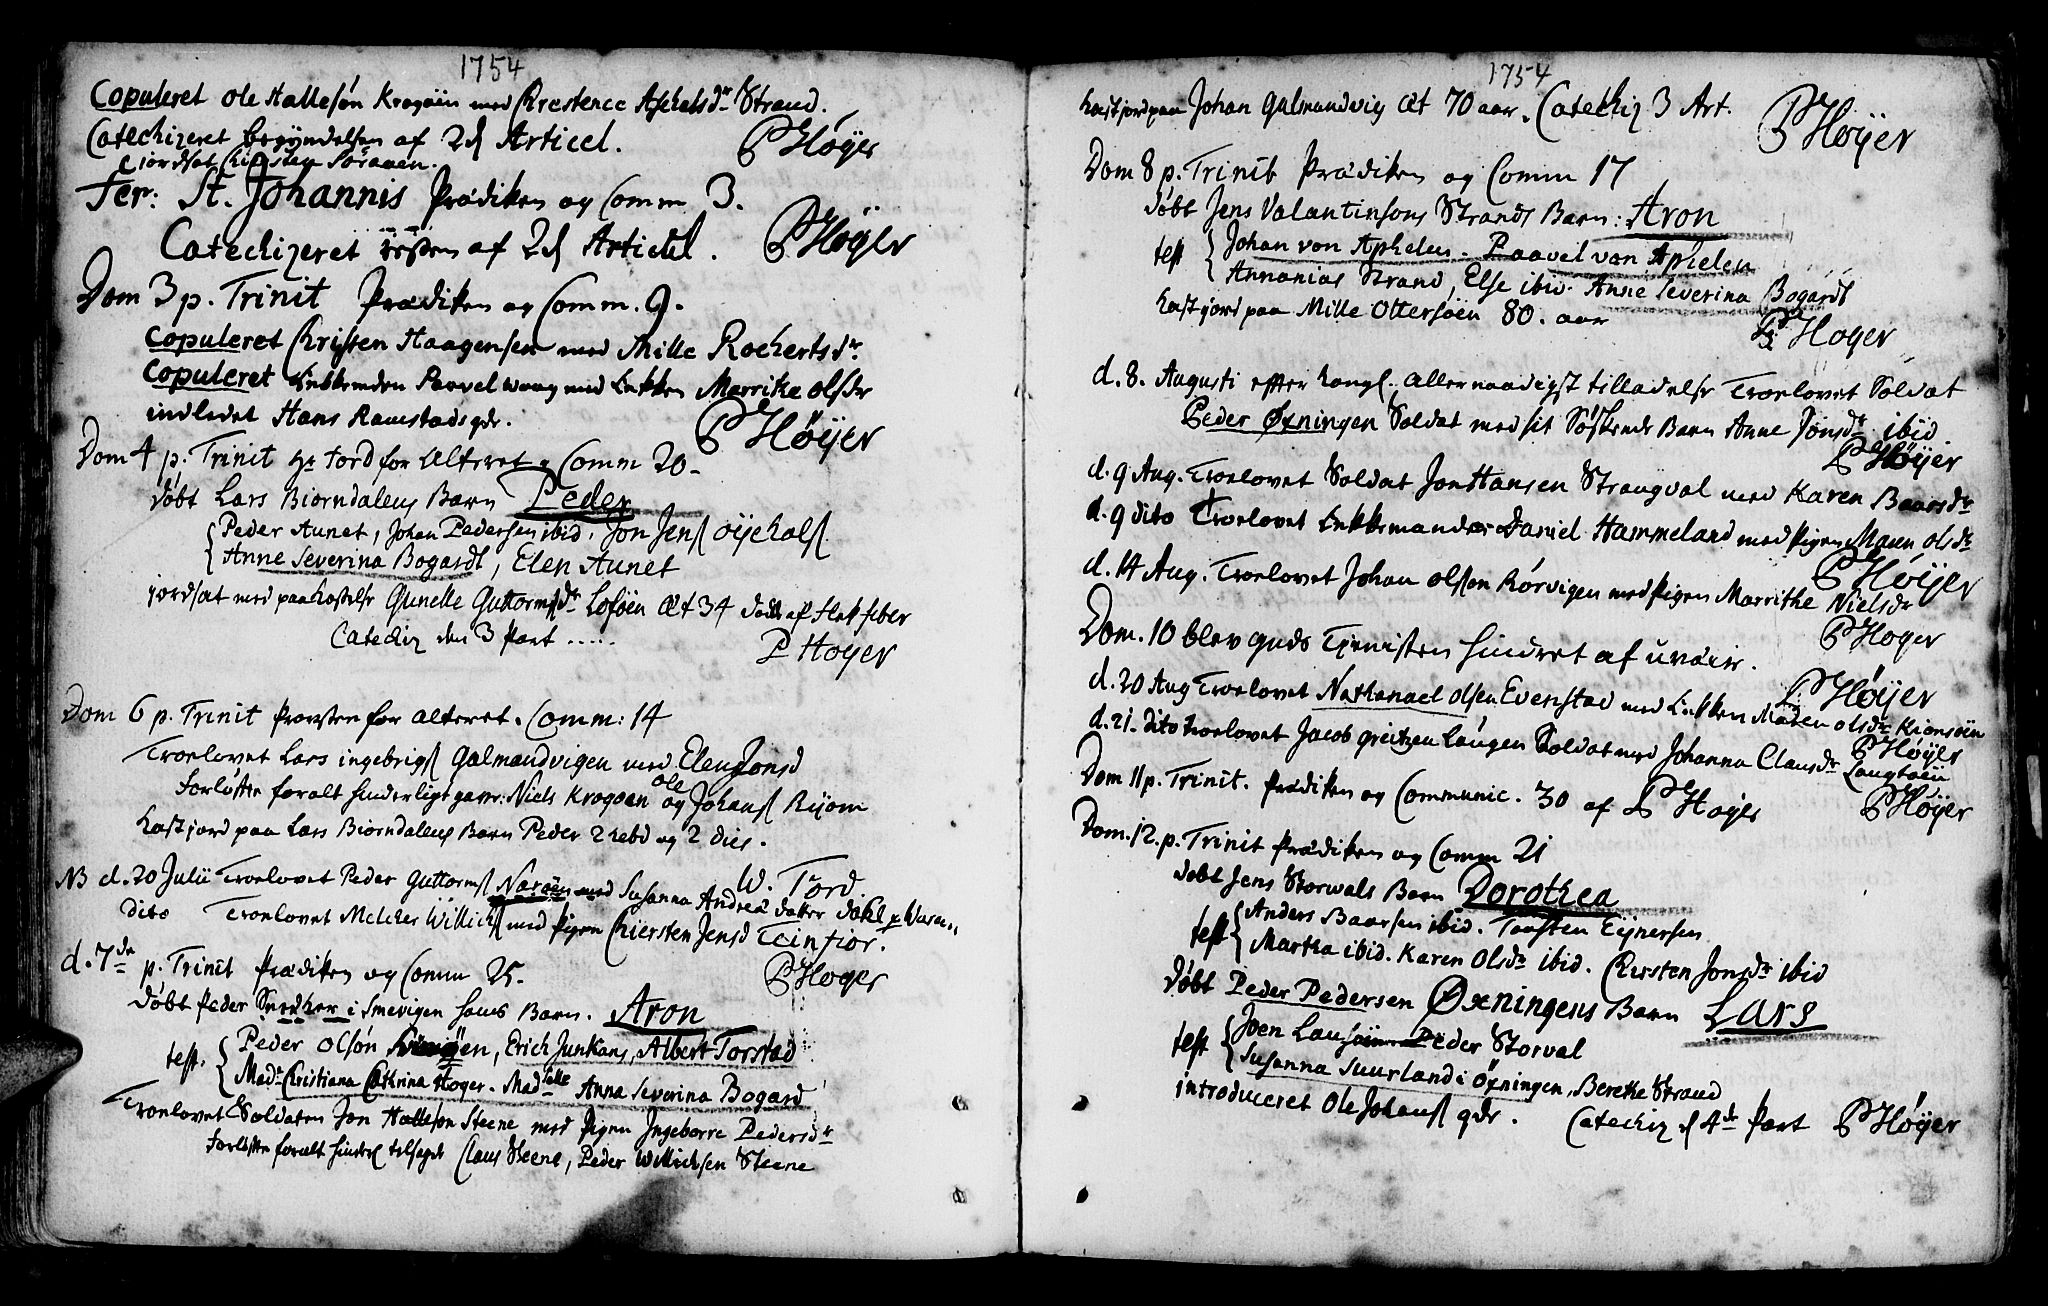 1754
Copuleret Ole Hallesøn Krogøen med Chrestence Aschelsdr Strand.
Catechizeret begyndelsen af 2d Articel. P Høyer
jordsat Christen
Fer: St. Johannis Prædiken og Comm 3.
Catechizeret resten af 2d Articul. P Høyer
Dom 3 p. Trinit Prædiken og Comm. 9.
Copuleret Christen Haagensen med Mille Rochertsdr.
Copuleret Enkemanden Paavel Waag med Enken Marrike Olsdr
indledet Hans Ramstads qdr. P Høyer
Dom 4 p. Trinit Hr Tord for Alteret, Comm 20.
døbt Lars Biorndalens Barn Peder
Peder Aunet, Johan Pedersen ibid, Jon Jens øijehals
Anne Severina Bogardt, Elen Aunet
jordsat med paakastelse Gunelle Guttormsdr Loføen Æt 34 døde af Flekfeber
Catechiz den 3 Part ..... P Høyer
Dom 6 p. Trinit Provsten for Alteret. Comm: 14
Troelovet Lars ingebrigs Galmandvigen med Elen Jonsd
Forløftere foralt hinderligt gavr: Niels Krogøen og Ole Johans Ryom
Kast jord paa Lars Biorndalens Barn Peder 2 hebd og 2 dies.
W. Tord
NB d. 20 Julii Troelovet Peder Guttorms Narøen med Susanna Andrea datter
dito Troelovet Melcher Willichs med Pigen Chiersten Jensd Teinfior.
d. 7de p. Trinit Prædiken og Comm 25. P Høyer
døbt Peder Snedker i Smevigen hans Barn. Aron
test. Peder Olsøn, Erich Junkans, Albert Torstad
Mad: Christiana Cathrina Høyer. Madselle Anna Severina Bogard
Troelovet Soldaten Jon Hallesøn Steene med Pigen Ingeborre Pedersdr
Forløftere foralt hinder tilsagde Claus Steene, Peder Willichsen Steene
1754
Kast jord paa Johan Galmandvig Æt 70 aar. Catechiz 3 Art. P Høyer
Dom 8 p. Trinit Prædiken og Comm 17
døbt Jens Valantinsøns Strands Barn: Aron
test Johan von Aphelen. Paavel von Aphelen
Annanias Strand, Else ibid. Anne Severina Bogardt
Kast jord paa Mille Ottersøen 80. aar P Høyer
d. 8. Augusti efter kongl: allernaadigst tilladelse Troelovet Soldat
Peder Øxningen Soldat med sit Søskende Barn Anne Jonsdr ibid.
P Høyer
d. 9 Aug. Troelovet Soldat Jon Hansen Strangval med Karen Baarsdr
d. 9 dito Troelovet Enkkemanden Daniel Hammeland med Pigen Maren Olsdr
P Høyer
d. 14 Aug. Troelovet Johan Olssen Rørvigen med Pigen Marrithe Nielsdr
P Høyer
Dom. 10 blev guds Tienisten hindret af uvæir.
P Høyer
d. 20 Aug Troelovet Nathanael Olsen Evenstad med Enkken Maren Olsdr Kionsøen
P Høyer
d. 21. dito troelovet Jacob Laugen Soldat med Johanna Clausdr Langtøen
Dom 11 p. Trinit. Prædiken og Communic. 30 af P Høyer P Høyer
Dom. 12. p. Trinit Prædiken og Comm 21
døbt Jens Storvals Barn Dorothea
test Anders Baarsen ibid. Torsten Eijnersen
Martha ibid. Karen Olsdr ibid. Chersten Jonsdr ibid
døbt Peder Pedersen Øxningens Barn Lars
test Joen Peder Storval
Susanna Suurland i Øxningen, Berethe Strand
introduceret Ole Johans qdr. Catechiz d 4de Part P Høyer